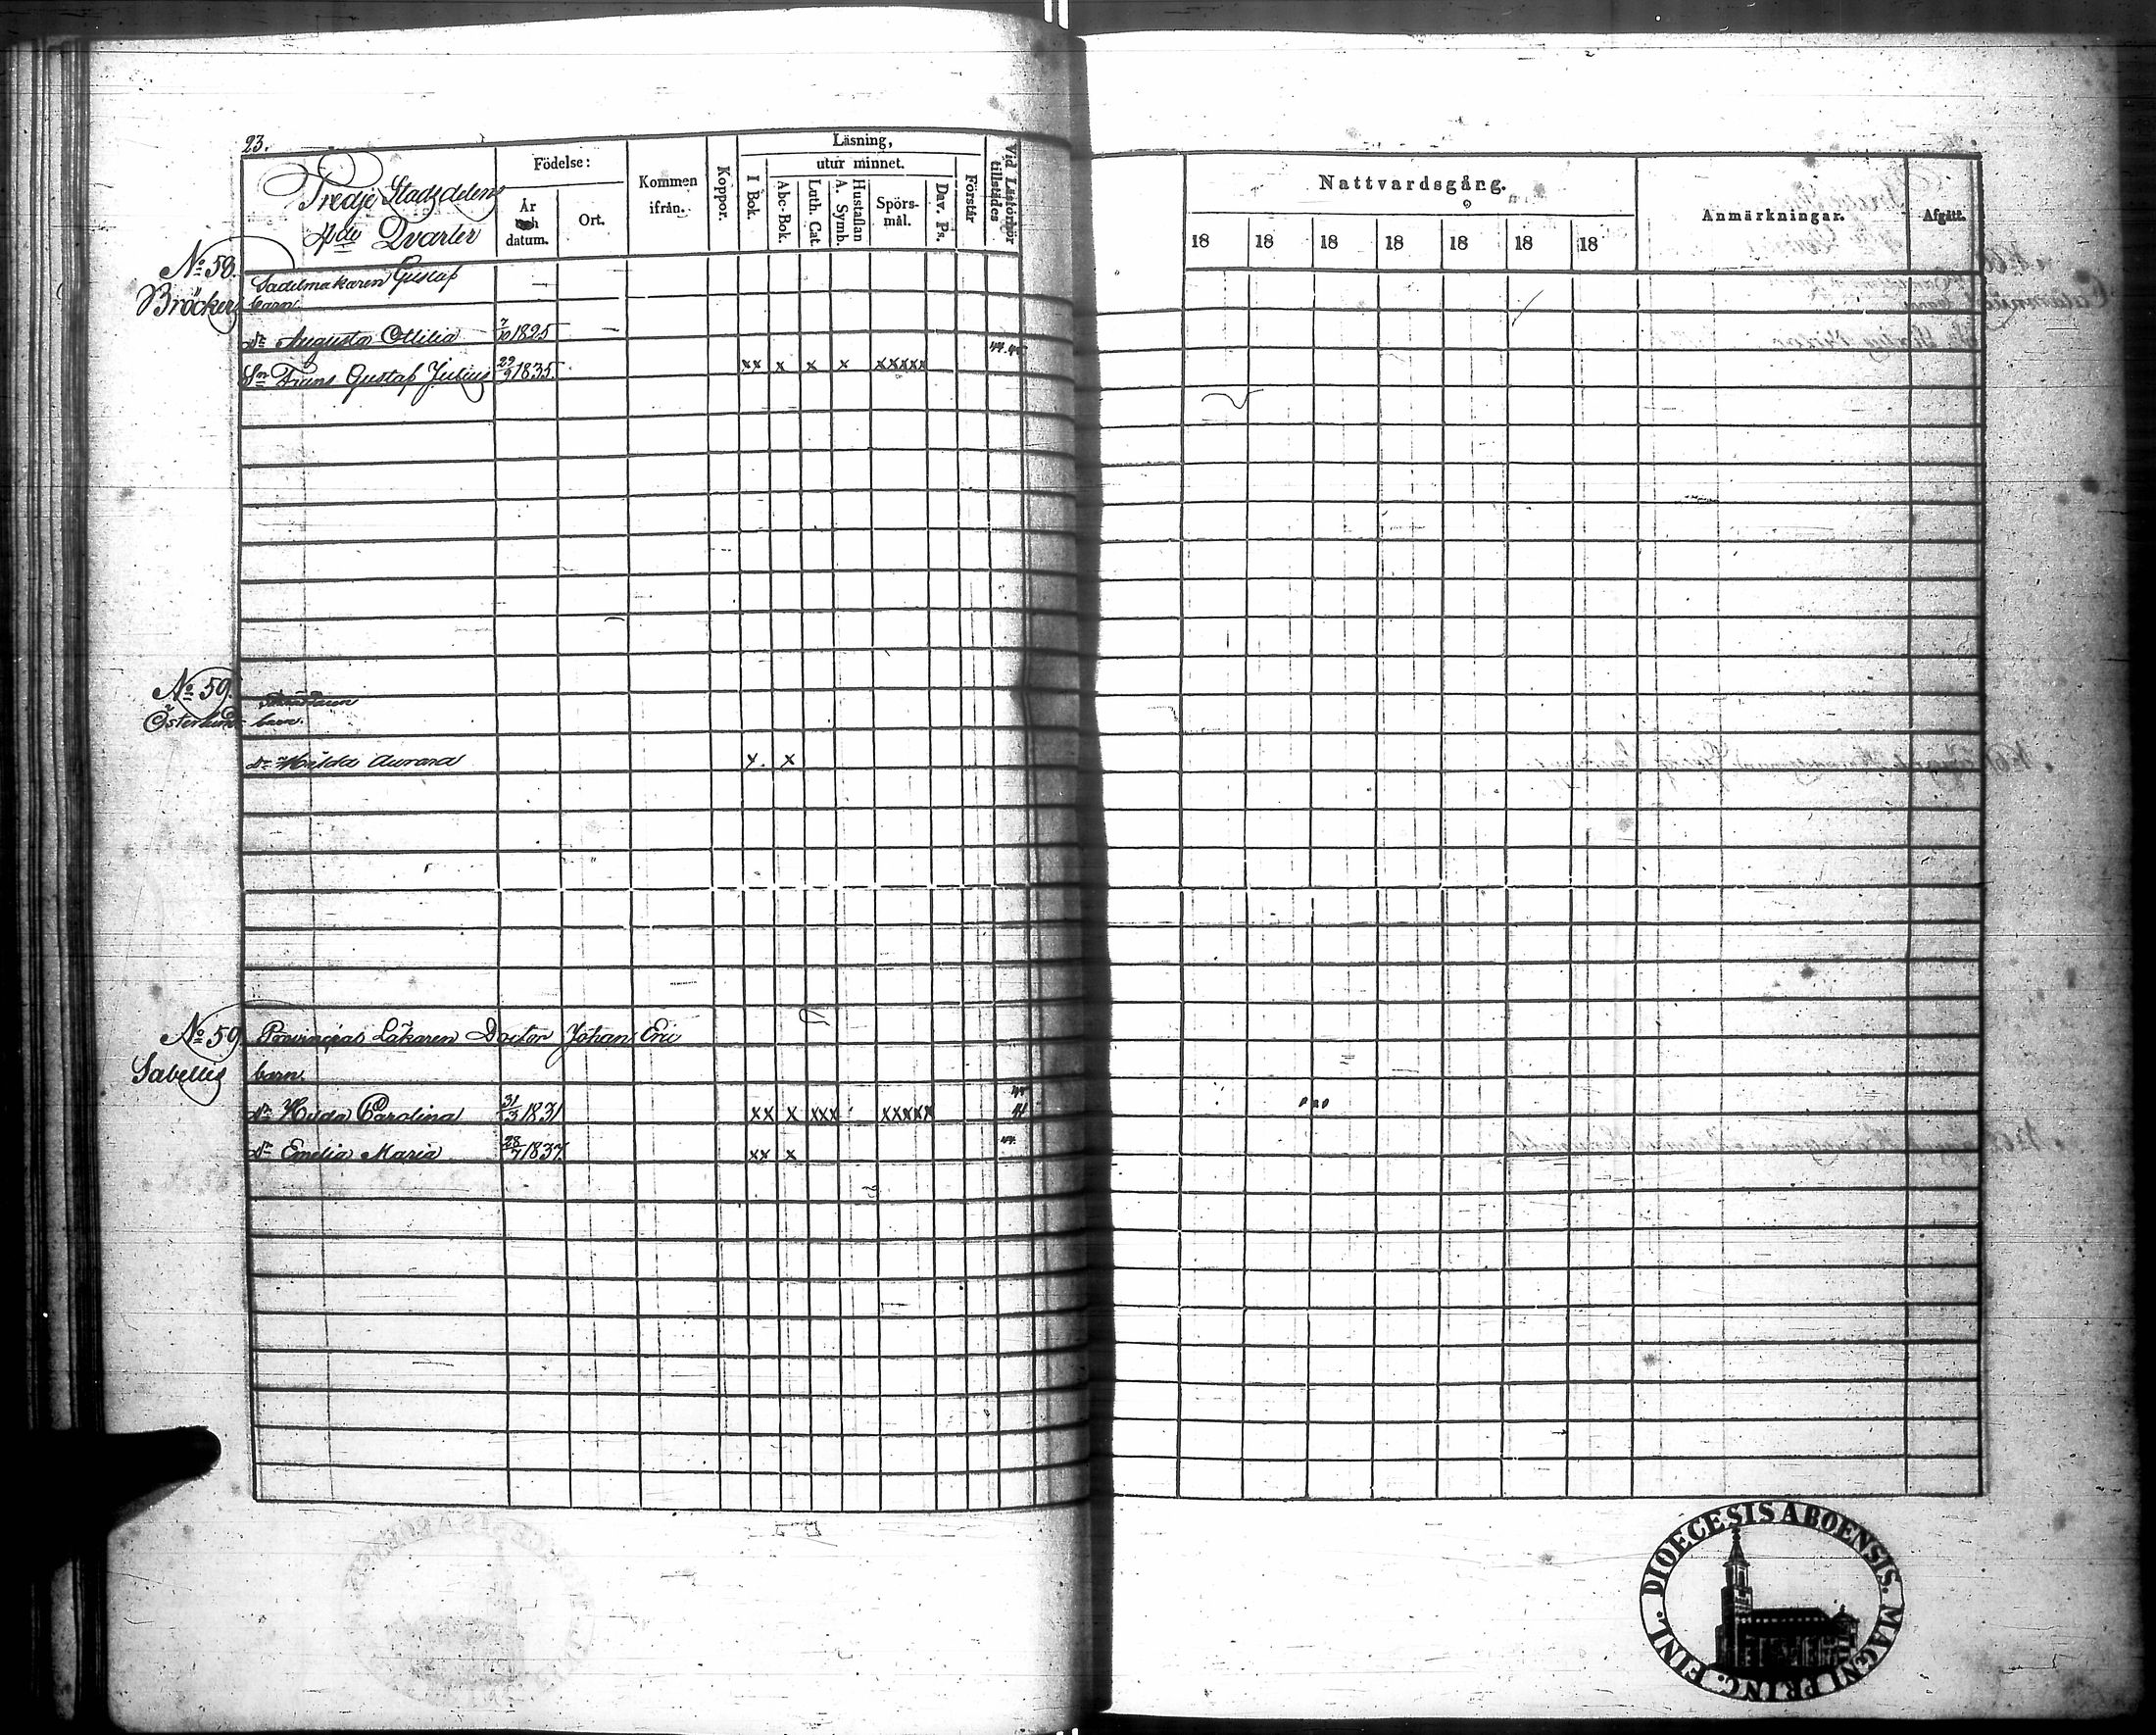 23.
Tredje Stadsdelens
4de Qvarter
Födelse:
År och datum.
Ort.
Kommen ifrån.
Koppor.
Läsning,
I Bok.
utur minnet.
Abc-Bok.
Luth. Cat.
A. Symb.
Hustaflan
Spörs-mål.
Dav. Ps.
Förstår
Vid Läsförhör tillstädes
Nattvardsgång.
18 18 18 18 18 18 18
Anmärkningar.
Afgått.
No 58. Sadelmakaren Gustaf
Bröckers barn.
dr Augusta Ottilia 7/10 1825
Sn Frans Gustaf Julius 29/9 1835. xx x x x xxxxx 44. 45
No 59.
Österlunds barn.
dr Hilda Aurora x. x
No 59 Provincial Läkaren Doctor Johan Eric
Sabelli barn.
dr Hilda Carolina 31/3 1831 xx x xxx xxxxx 41
dr Emelia Maria 28/7 1837. xx x 44.
DIOECESIS ABOENSIS. MAGNI PRINC. FINL.